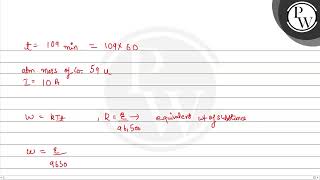 PW
t = 109 min = 109 × 60
atm mass of Co = 59 u
I = 10 A
W = kIt , k = E/96500 → equivalent wt of substance
W = E/9650